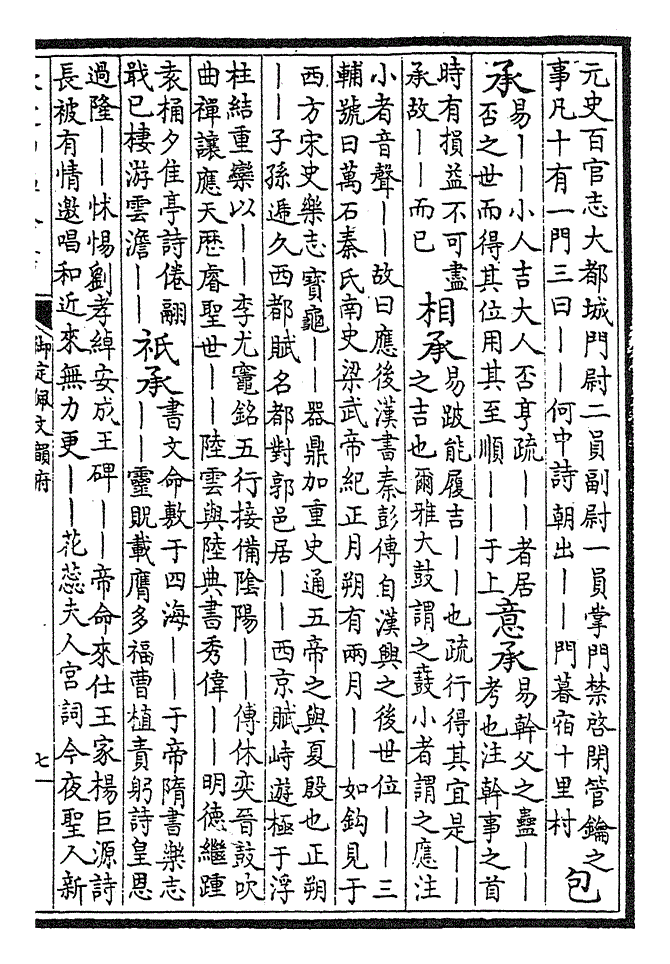 元史百官志大都城門尉二員副尉一員掌門禁啓閉管鑰之
事凡十有一門三曰——何中詩朝出——門暮宿十里村
包
承
易——小人吉大人否亨疏——者居
否之世而得其位用其至順——于上
意承
易幹父之蠱——
考也注幹事之首
時有損益不可盡
承故——而已
相承
易跛能履吉——也疏行得其宜是——
之吉也爾雅大鼓謂之鼖小者謂之應注
小者音聲——故曰應後漢書秦彭傳自漢興之後世位——三
輔號曰萬石秦氏南史梁武帝紀正月朔有兩月——如鈎見于
西方宋史樂志寶龜——器鼎加重史通五帝之與夏殷也正朔
——子孫遞久西都賦名都對郭邑居——西京賦峙遊極于浮
柱結重欒以——李尤竈銘五行接備陰陽——傅休奕晉鼓吹
曲禪讓應天厯睿聖世——陸雲與陸典書秀偉——明德繼踵
袁桷夕佳亭詩倦翮
戢已棲游雲澹——
祇承
書文命敷于四海——于帝隋書樂志
——靈貺載膺多福曹植責躬詩皇恩
過隆——怵惕劉孝綽安成王碑——帝命來仕王家楊巨源詩
長被有情邀唱和近來無力更——花蕊夫人宮詞今夜聖人新
御定佩文韻府
七